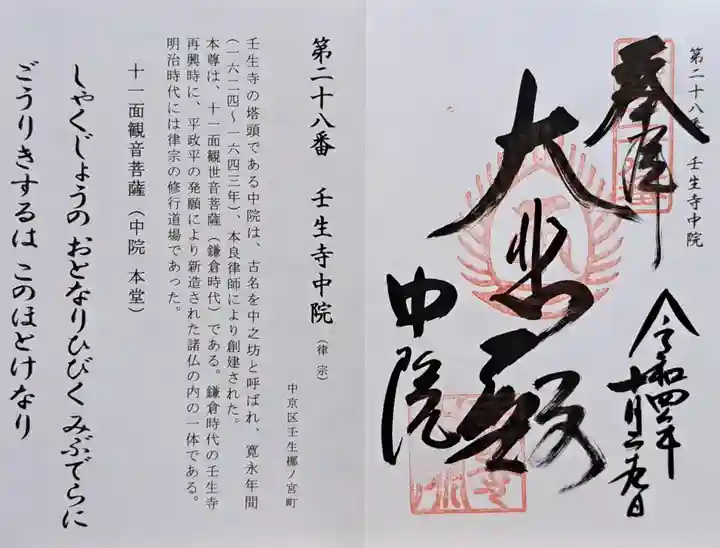 第二十八番 壬生寺中院
奉拝
令和四年
十月二九日
大悲殿
中院
第二十八番 壬生寺中院（律宗）
中京区壬生梛ノ宮町
壬生寺の塔頭である中院は、古名を中之坊と呼ばれ、寛永年間
（一六二四～一六四三年）、本良律師により創建された。
本尊は、十一面観世音菩薩（鎌倉時代）である。鎌倉時代の壬生寺
再興時に、平政平の発願により新造された諸仏の内の一体である。
明治時代には律宗の修行道場であった。
十一面観音菩薩（中院 本堂）
しゃくじょうの おとなりひびく みぶでらに
ごうりきするは このほとけなり